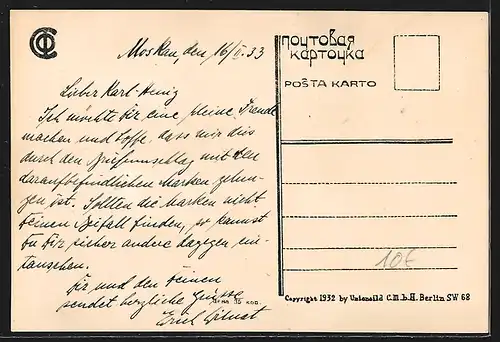 Moskau, den 16/V. 33
Lieber Karl-Heinz
Ich möchte Dir eine kleine Freude
machen und hoffe, dass mir dies
durch den Briefumschlag mit den
daraufbefindlichen Marken gelun-
gen ist. Sollten die Marken nicht
Deinen Beifall finden, so kannst
Du Dir sicher andere dagegen ein-
tauschen.
Dir und den Deinen
sendet herzliche Grüsse
Erich
почтовая
карточка
POŜTA KARTO
10€
15 коп.
Copyright 1932 by Unionbild G.m.b.H. Berlin SW 68